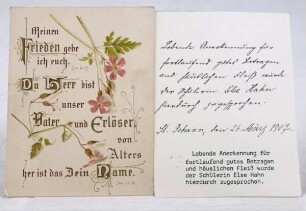 Meinen
Frieden gebe
ich euch.
Du Herr bist
unser
Vater und Erlöser,
von
Alters
her ist das Dein Name.
Lobende Anerkennung für
fortlaufend gutes Betragen
und häuslichen Fleiß wurde
der Schülerin Else Hahn
hierdurch zugesprochen.
St. Johann, den 26. März 1907.
Lobende Anerkennung für
fortlaufend gutes Betragen
und häuslichen Fleiß wurde
der Schülerin Else Hahn
hierdurch zugesprochen.